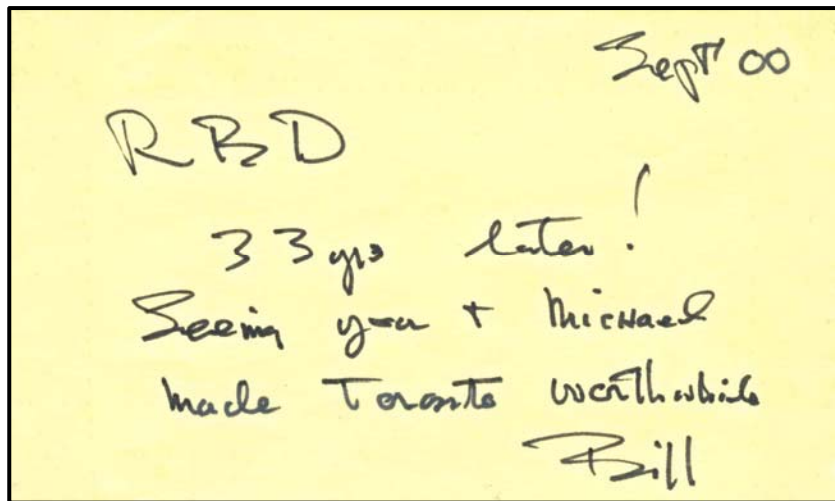 Sept 00
RBD
33 yrs later!
Seeing you + Michael
made Toronto worthwhile
Bill